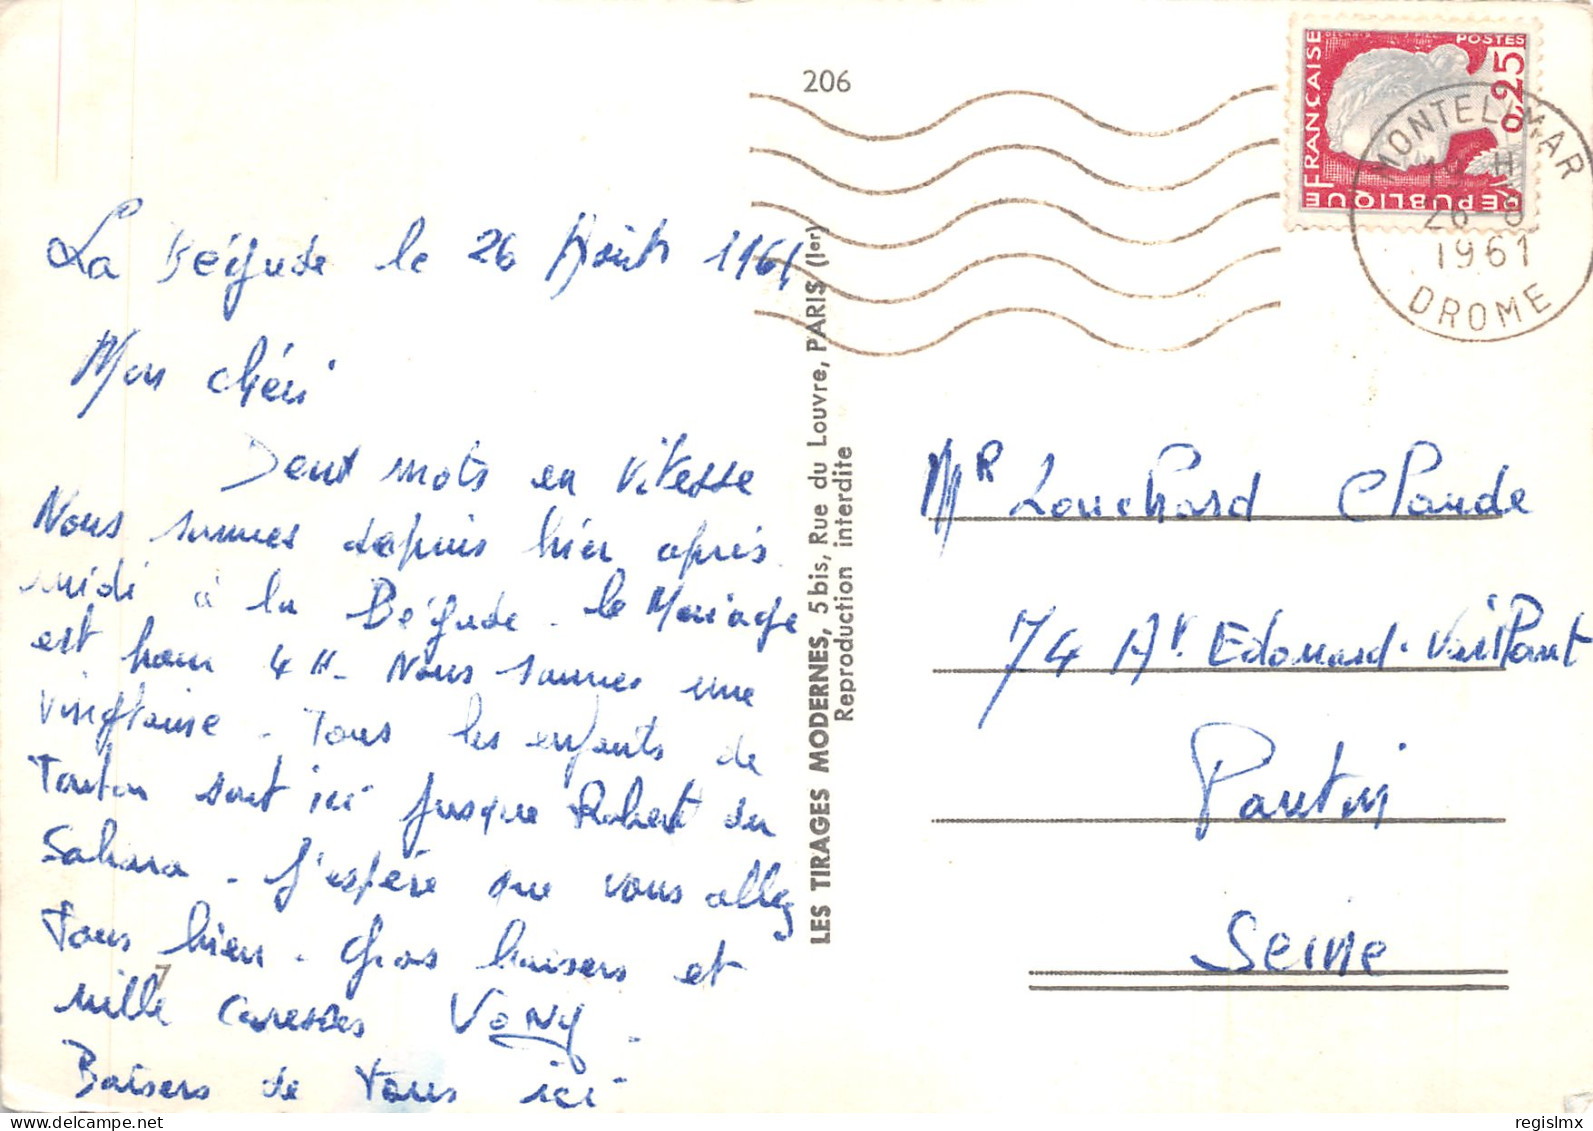 La Bégude le 26 Août 1961
Mon chéri
Deux mots en vitesse
Nous sommes depuis hier après
midi à la Bégude. le Mariage
est pour 4 H. Nous sommes une
vingtaine. Tous les enfants de
Tonton sont ici jusque Robert du
Sahara. J'espère que vous allez
tous bien. Gros baisers et
mille caresses Vony.
Baisers de tous ici
206
LES TIRAGES MODERNES, 5 bis, Rue du Louvre, PARIS (Ier)
Reproduction interdite
REPUBLIQUE FRANÇAISE
POSTES
0,25
MONTELIMAR
19 H
26-8
1961
DROME
Mr Louchard Claude
74 Av. Edouard-Vaillant
Pantin
Seine
delcampe.net
regislmx